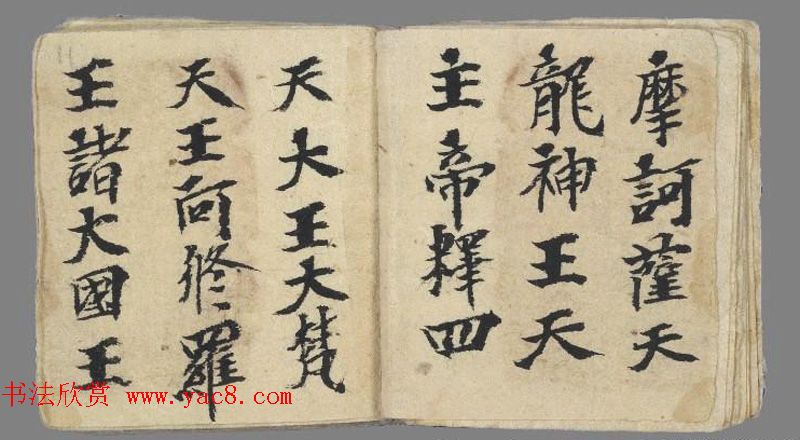 摩訶薩天
龍神王天
主帝釋四
天大王大梵
天王阿修羅
王諸大國王
书法欣赏 www.yac8.com